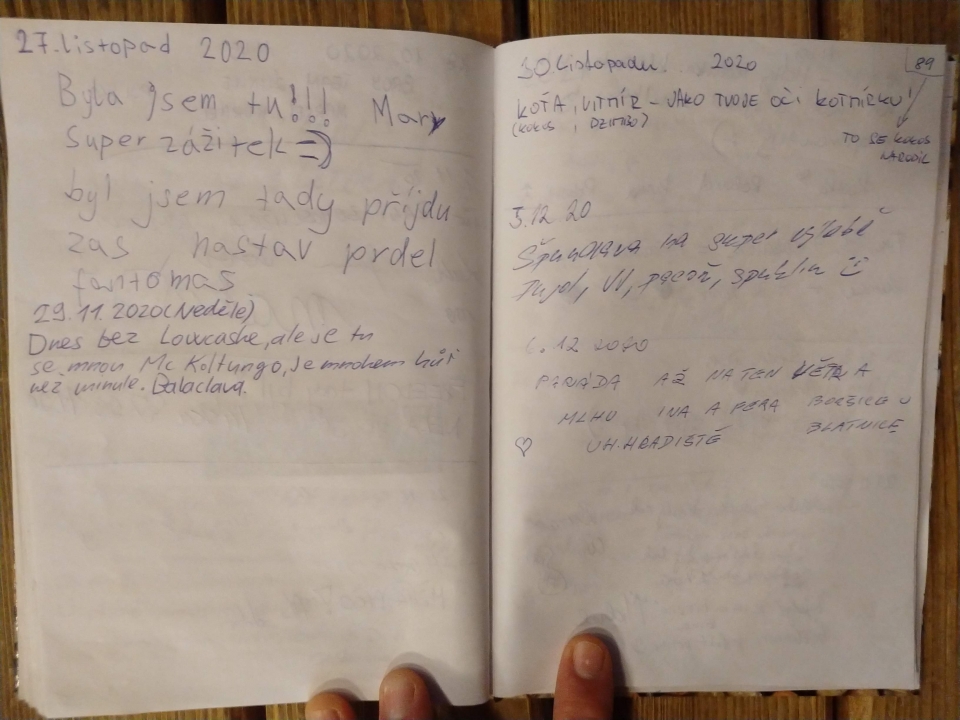 27.listopad 2020
Byla jsem tu!!! Mary
Super zážitek =)
byl jsem tady příjdu
zas nastav prdel
fantomas
29.11.2020(Neděle)
Dnes bez Lowcashe, ale je tu
se mnou Mc Koltungo, je mnohem hůř
než minule. Balaclava.
30.Listopadu. 2020
89
KOŤA, VITMÍR - JAKO TVOJE OČI KOTMÍRKU!
(KOKOS, DZIMBO)
TO SE KOKOS
NARODIL
5.12 20
na super výletě
6.12 2020
PARÁDA AŽ NA TEN VĚTR A
MLHU INA A PÉRA BORŠICE U
UH.HRADIŠTĚ BLATNICE